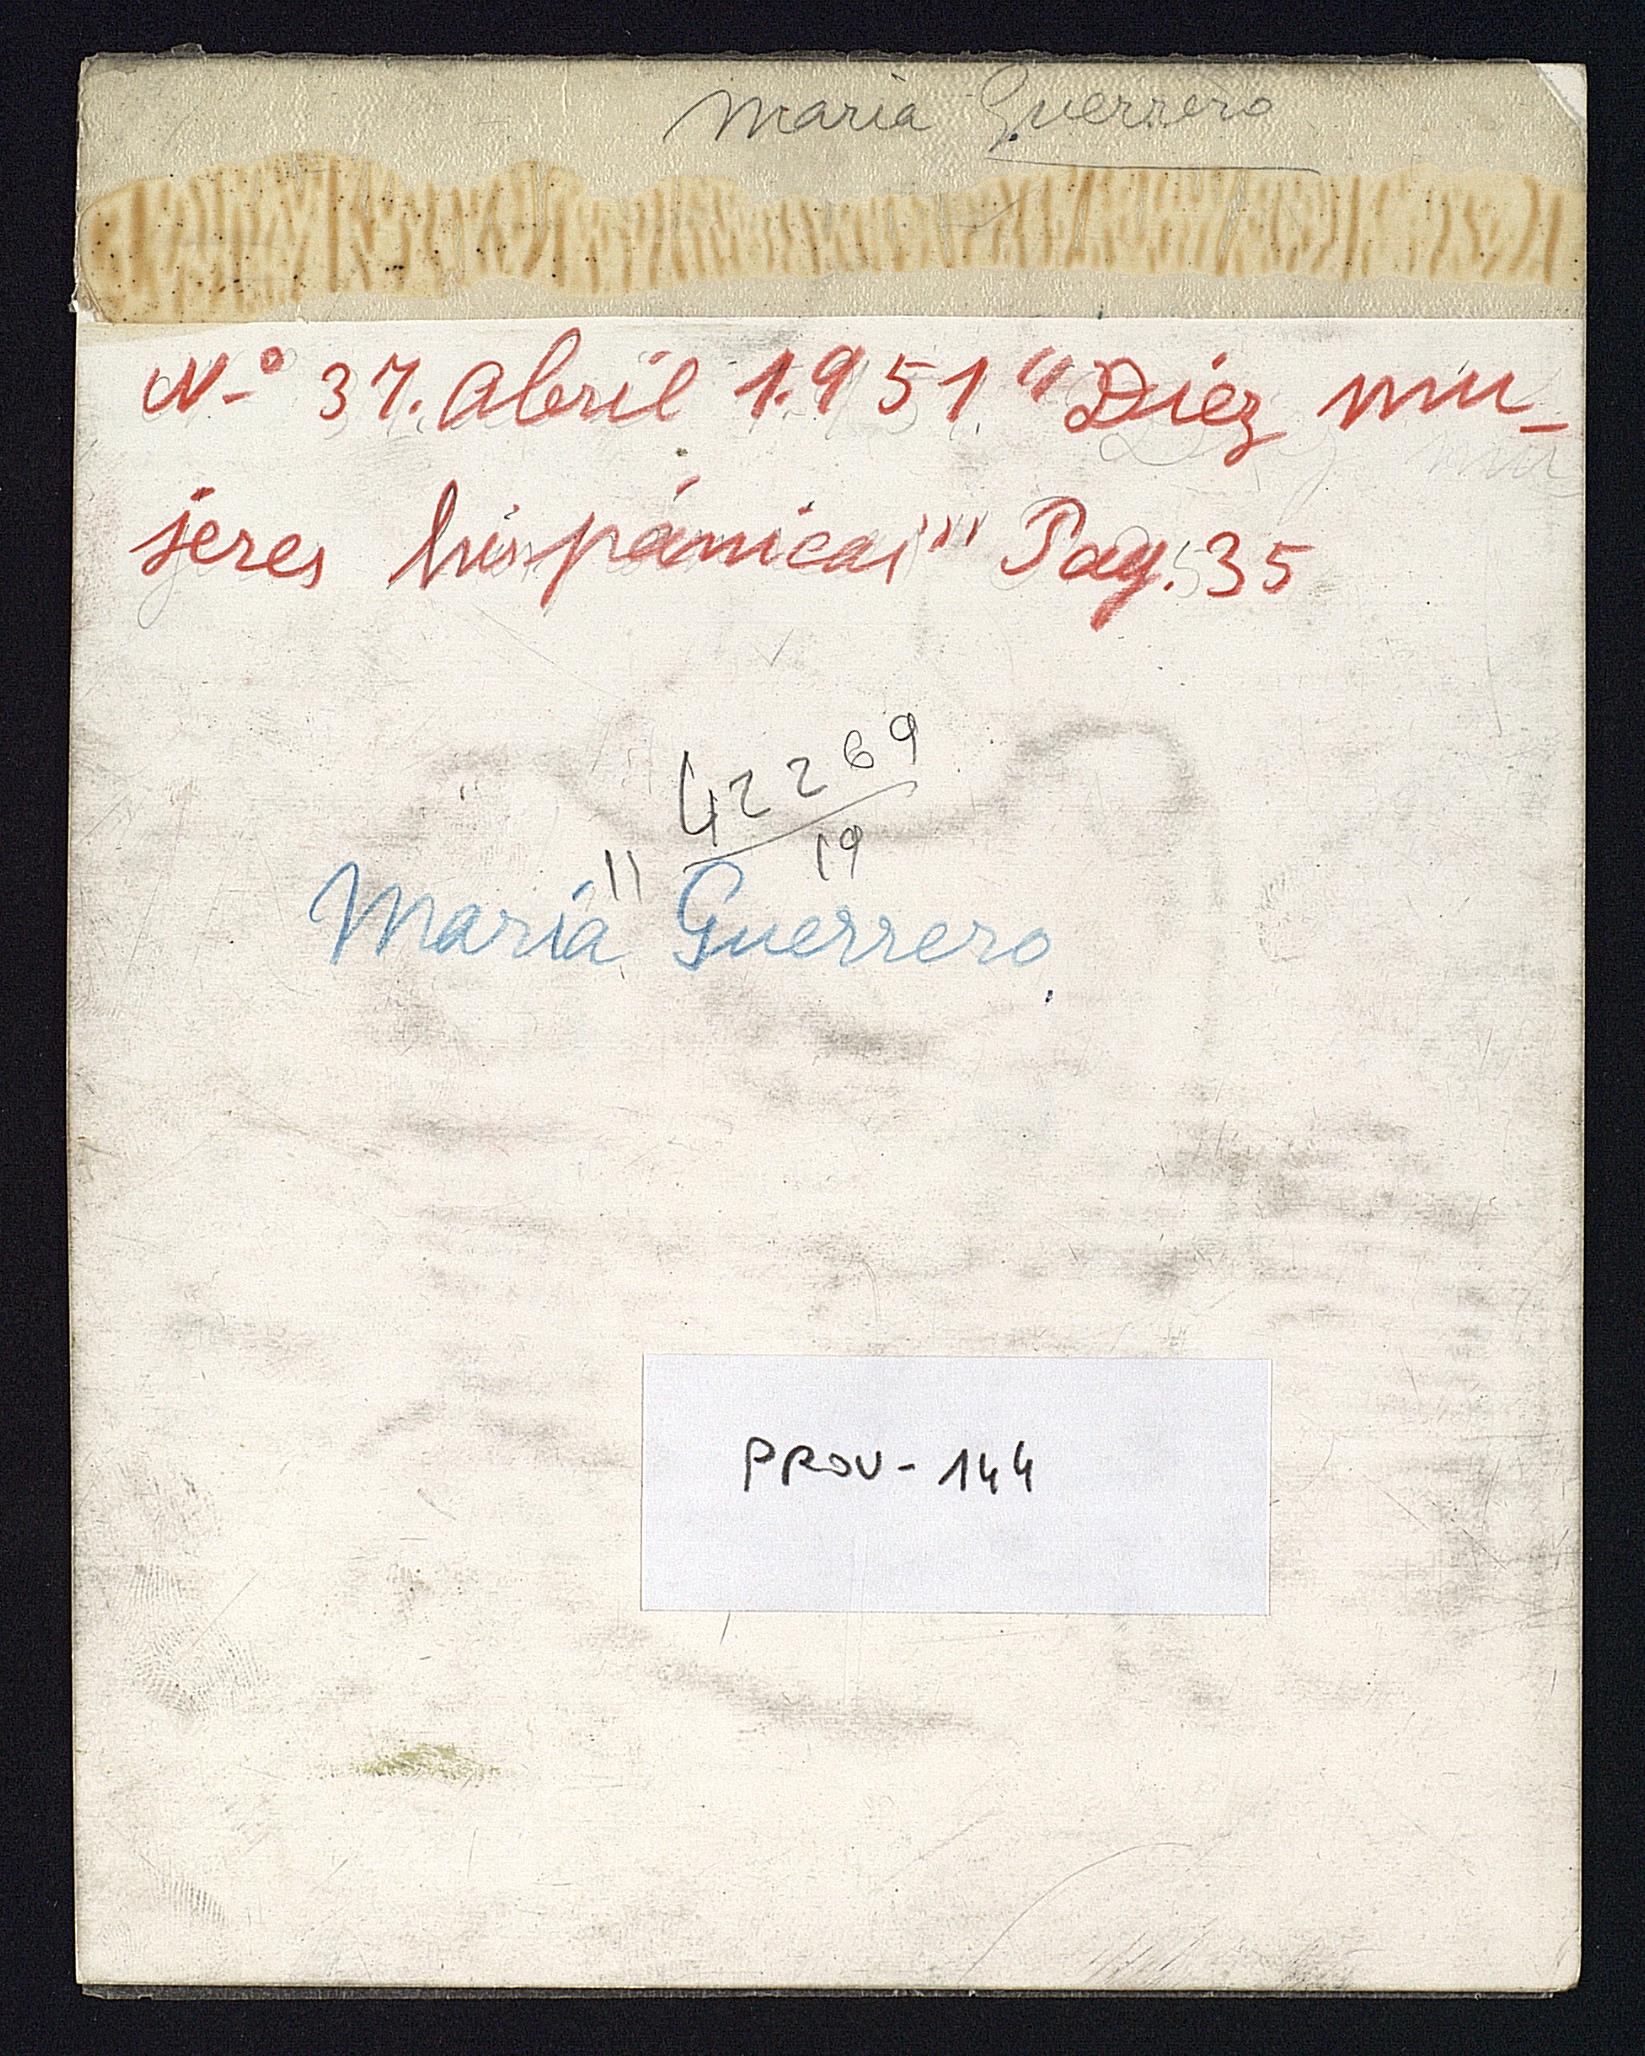 Maria Guerrero
N-º 37. Abril 1.951 "Diez mu-
jeres hispánicas" Pag. 35
42269
11 19
María Guerrero
PROV-144